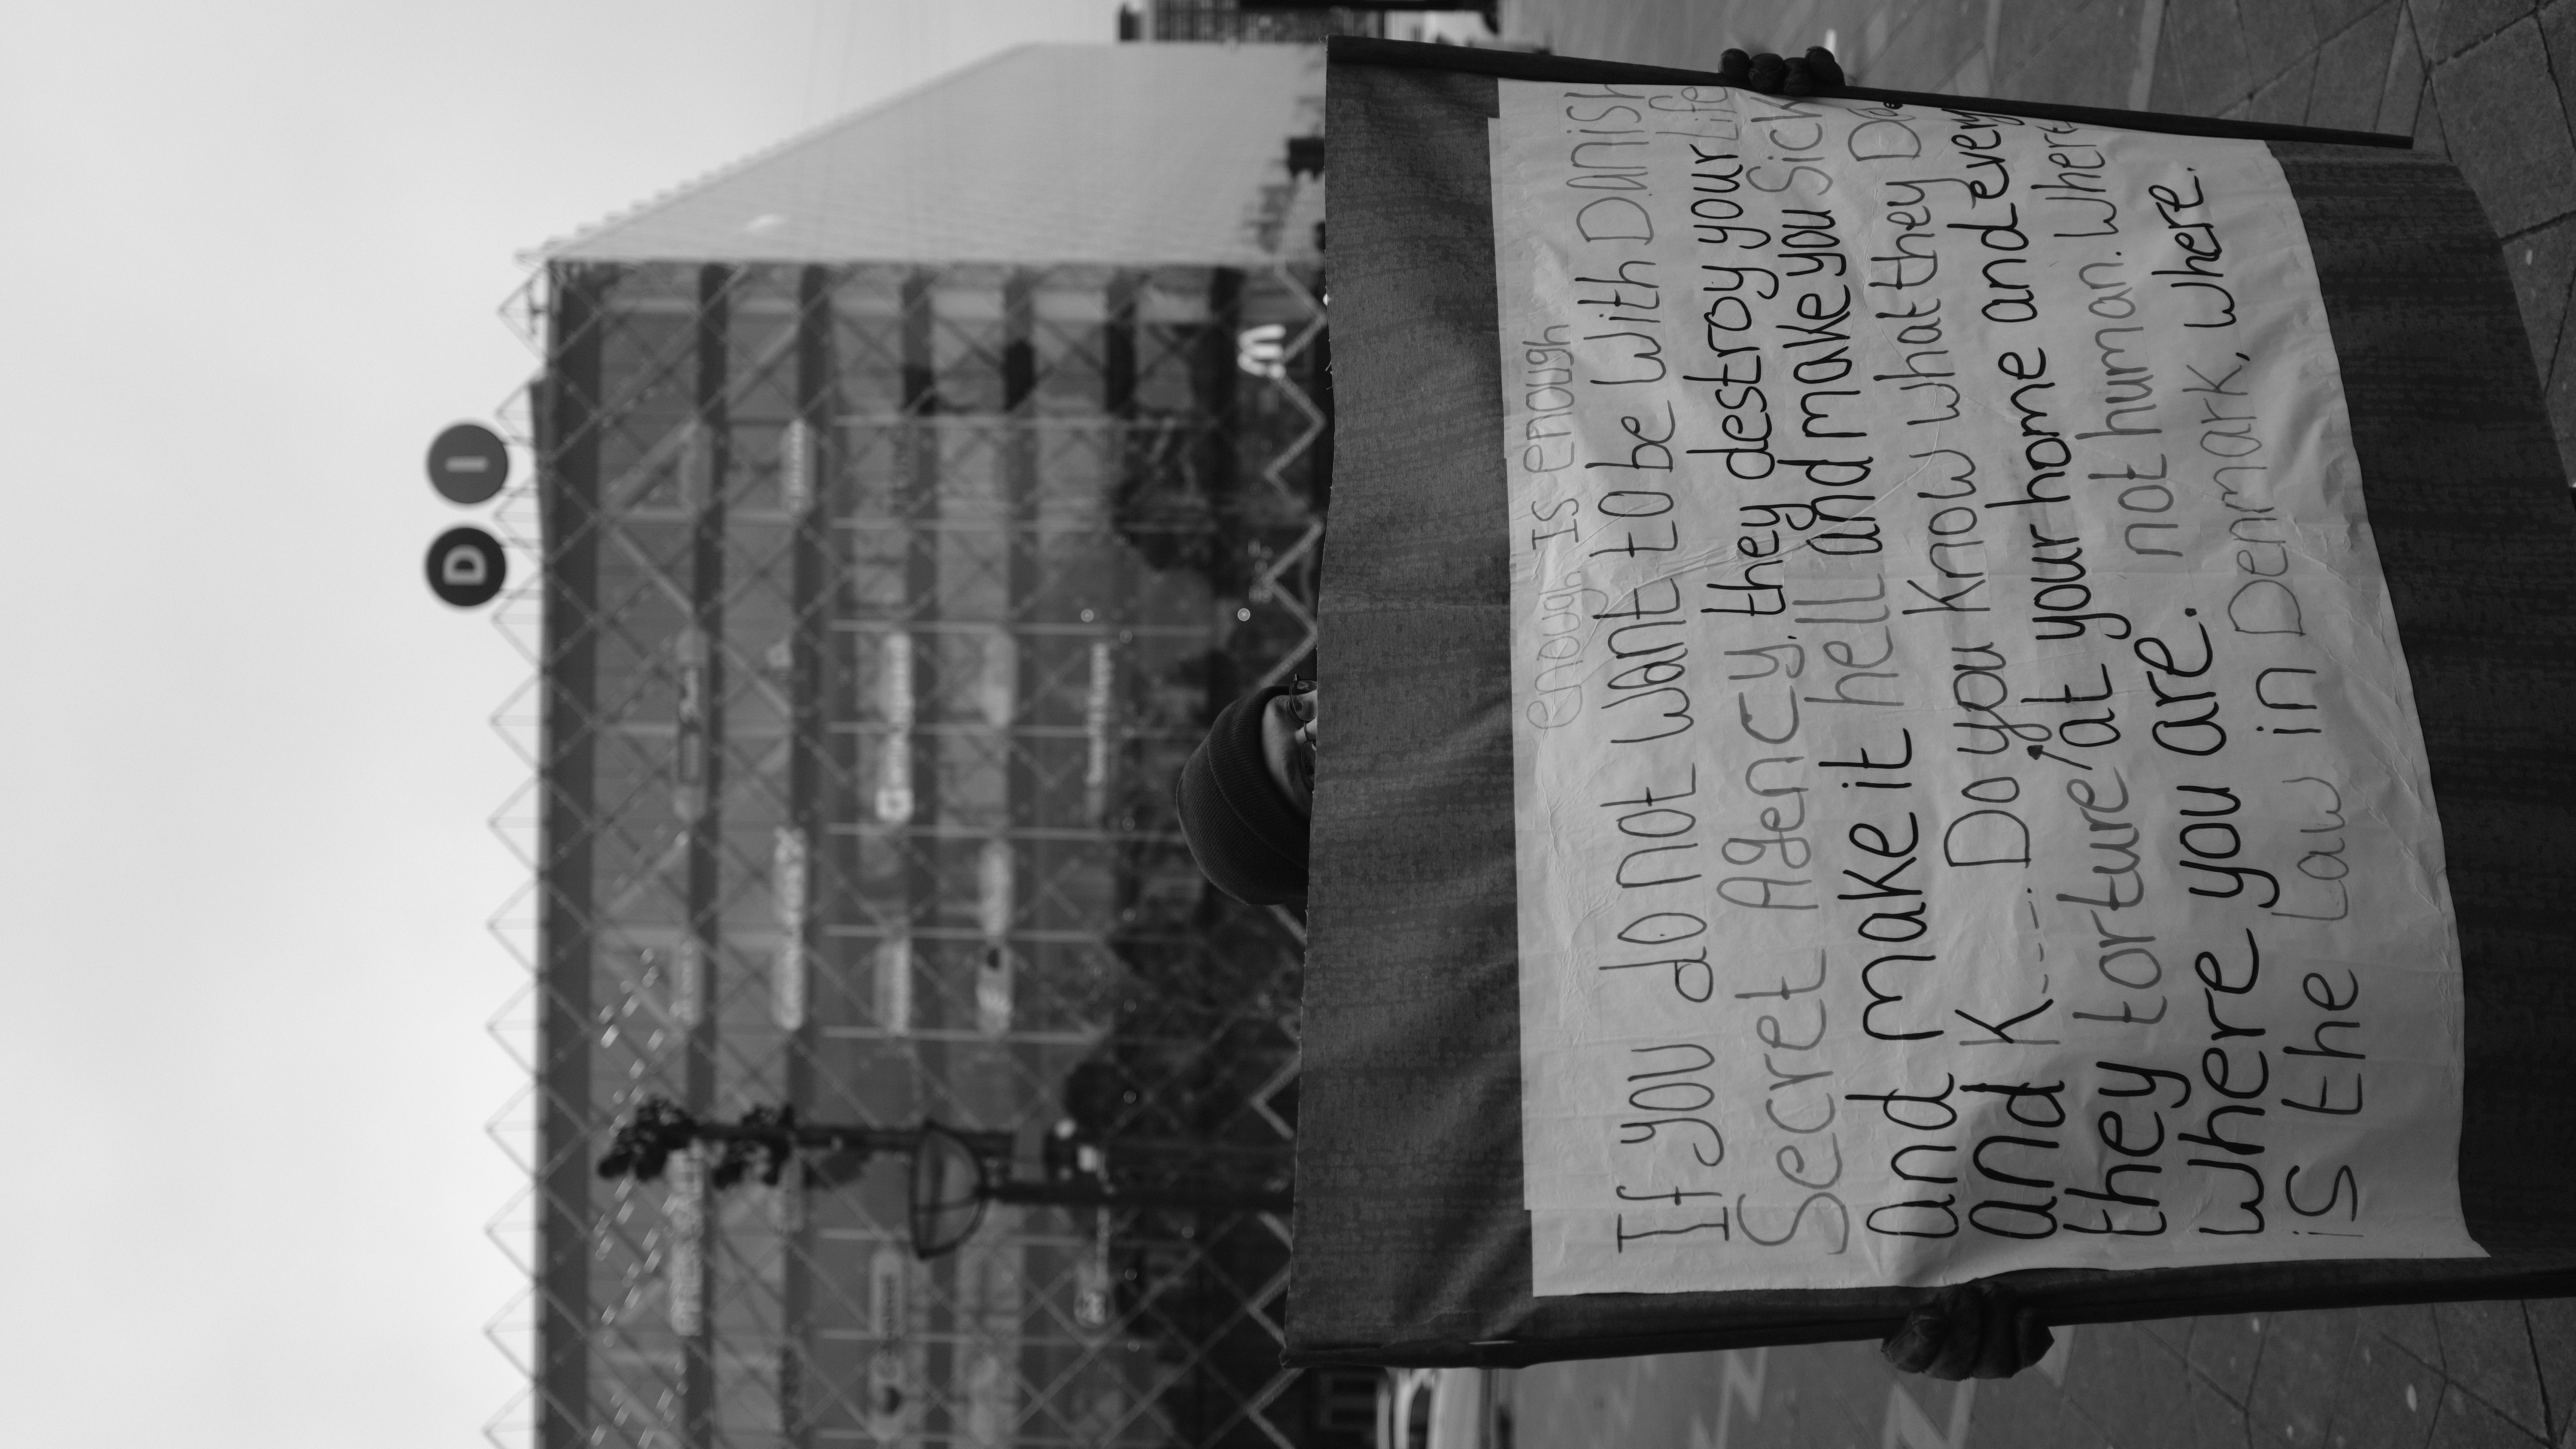 D I
enough IS enough
If you do not want to be with Danish
Secret Agency. they destroy your Life
and make it hell and make you Sick
and K---- Do you know what they Do
they torture at your home and every
where you are. not human. Where
is the Law in Denmark, where.